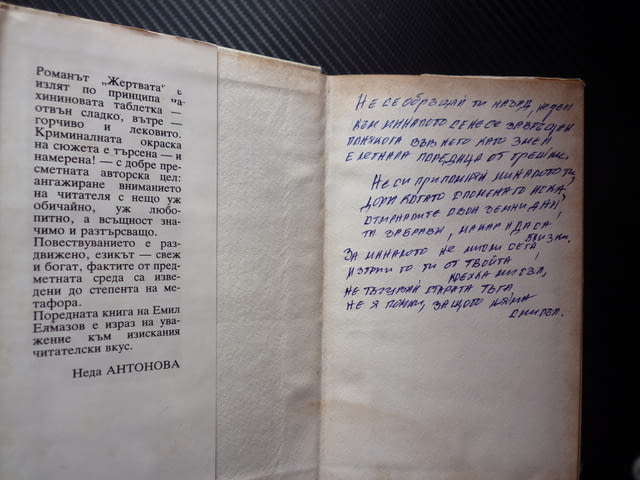 Романът „Жертвата“ е
излят по принципа на
хининовата таблетка —
отвън сладко, вътре —
горчиво и лековито.
Криминалната окраска
на сюжета е търсена — и
намерена! — с добре пре-
сметната авторска цел:
ангажиране вниманието
на читателя с нещо уж
обичайно, уж любо-
питно, а всъщност зна-
чимо и разтърсващо.
Повествуването е раз-
движено, езикът — свеж
и богат, фактите от пред-
метната среда са изве-
дени до степента на ме-
тафора.
Поредната книга на Емил
Елмазов е израз на ува-
жение към изискания
читателски вкус.
Неда АНТОНОВА
НЕ СЕ ОБРЪЩАЙ ТИ НАЗАД, НЕДЕЙ
КЪМ МИНАЛОТО СЕ НЕ СЕ ЗАВРЪЩАЙ
ПОНЯКОГА В НЕГО КАТО ЗМЕЙ
Е ПОРЕДИЦА ОТ ГРЕШКИ.
НЕ СИ ПРИПОМНЯЙ МИНАЛОТО ТИ,
ДОРИ КОГАТО СПОМЕНА ГО ИСКА,
ОТМИНАЛИТЕ ОНЕЗИ ДНИ
ТИ ЗАБРАВИ, МАКАР И ДА СА БЛИЗКИ.
ЗА МИНАЛОТО НЕ МИСЛИ СЕГА!
ИЗТРИЙ ГО ТИ ОТ ТВОЙТА
КРЕХКА МИСЪЛ,
НЕ ТЪГУВАЙ СТАРАТА ТЪГА,
НЕ Я ПОМНИ, ЗАЩОТО НЯМА
СМИСЪЛ.